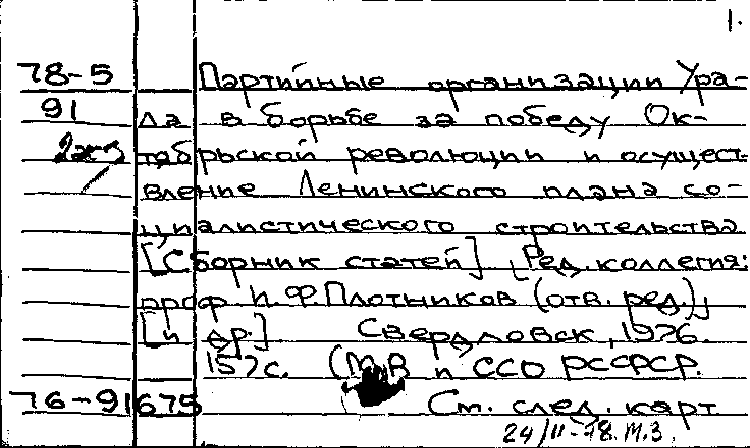 1.
78-5 Партийные организации Ура-
91 ла в борьбе за победу Ок-
2экз тябрьской революции и осущест-
вление Ленинского плана со-
циалистического строительства
[Сборник статей] [Ред. коллегия:
проф И. Ф. Плотников (отв. ред.),
[и др.] Свердловск, 1976.
157с. (М В и ССО РСФСР.
76-91675 См. след. карт
24/II-78. М.З.